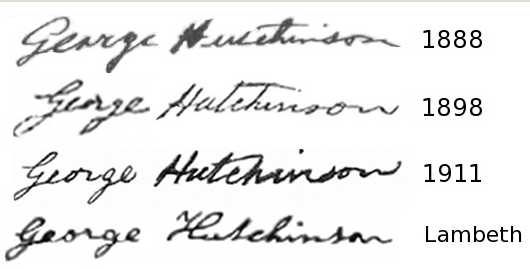 George Hutchinson 1888
George Hutchinson 1898
George Hutchinson 1911
George Hutchinson Lambeth